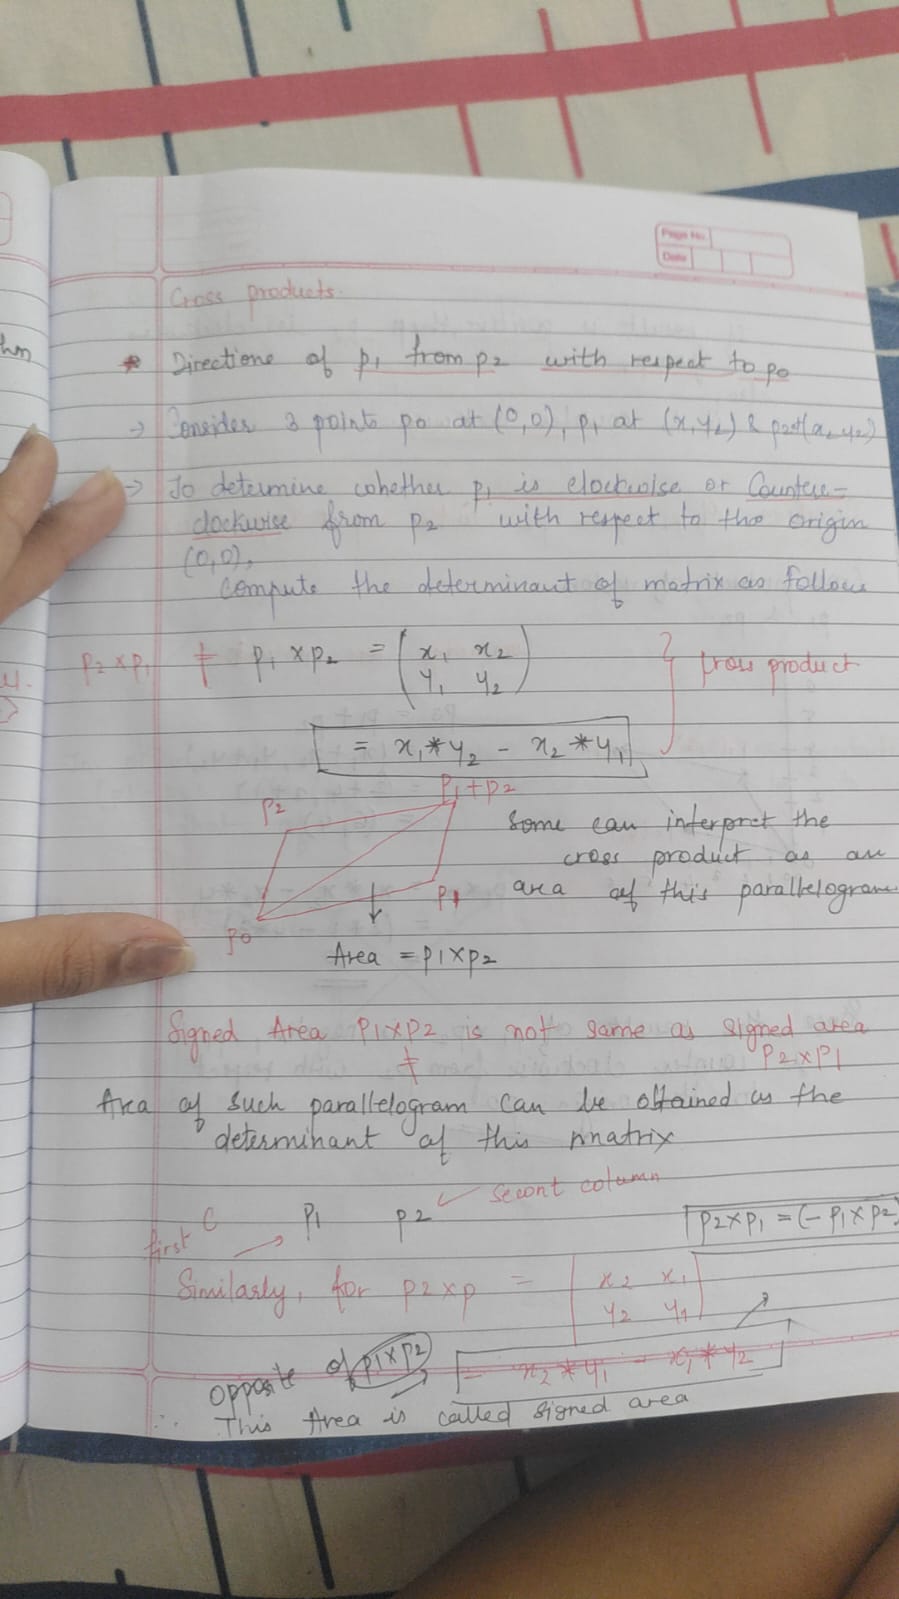 Page No.
Date
Cross products.
* Directione of p1 from p2 with respect to po
→ Consider 3 points po at (0,0), p1 at (x, y1) & p2 at (x2 y2)
→ To determine whether p1 is clockwise or Counterc-
clockwise from p2 with respect to the origin
(0,0),
compute the determinant of matrix as follows
P2 × P1 ≠ P1 × P2 = ( x1 x2
y1 y2 ) } cross product
= x1 * y2 - x2 * y1
P2 P1 + P2
Some can interpret the
cross product as an
P1 area of this parallelogram
Po
Area = P1 × P2
Signed Area P1×P2 is not same as signed area
≠ P2×P1
Area of such parallelogram can be obtained as the
determinant of this matrix
first C → P1 P2 ← secont column
P2×P1 = (- P1×P2)
Similarly, for P2×p = | x2 x1
y2 y1 |
opposite of P1×P2 → = x2 * y1 - x1 * y2
∴ This Area is called signed area